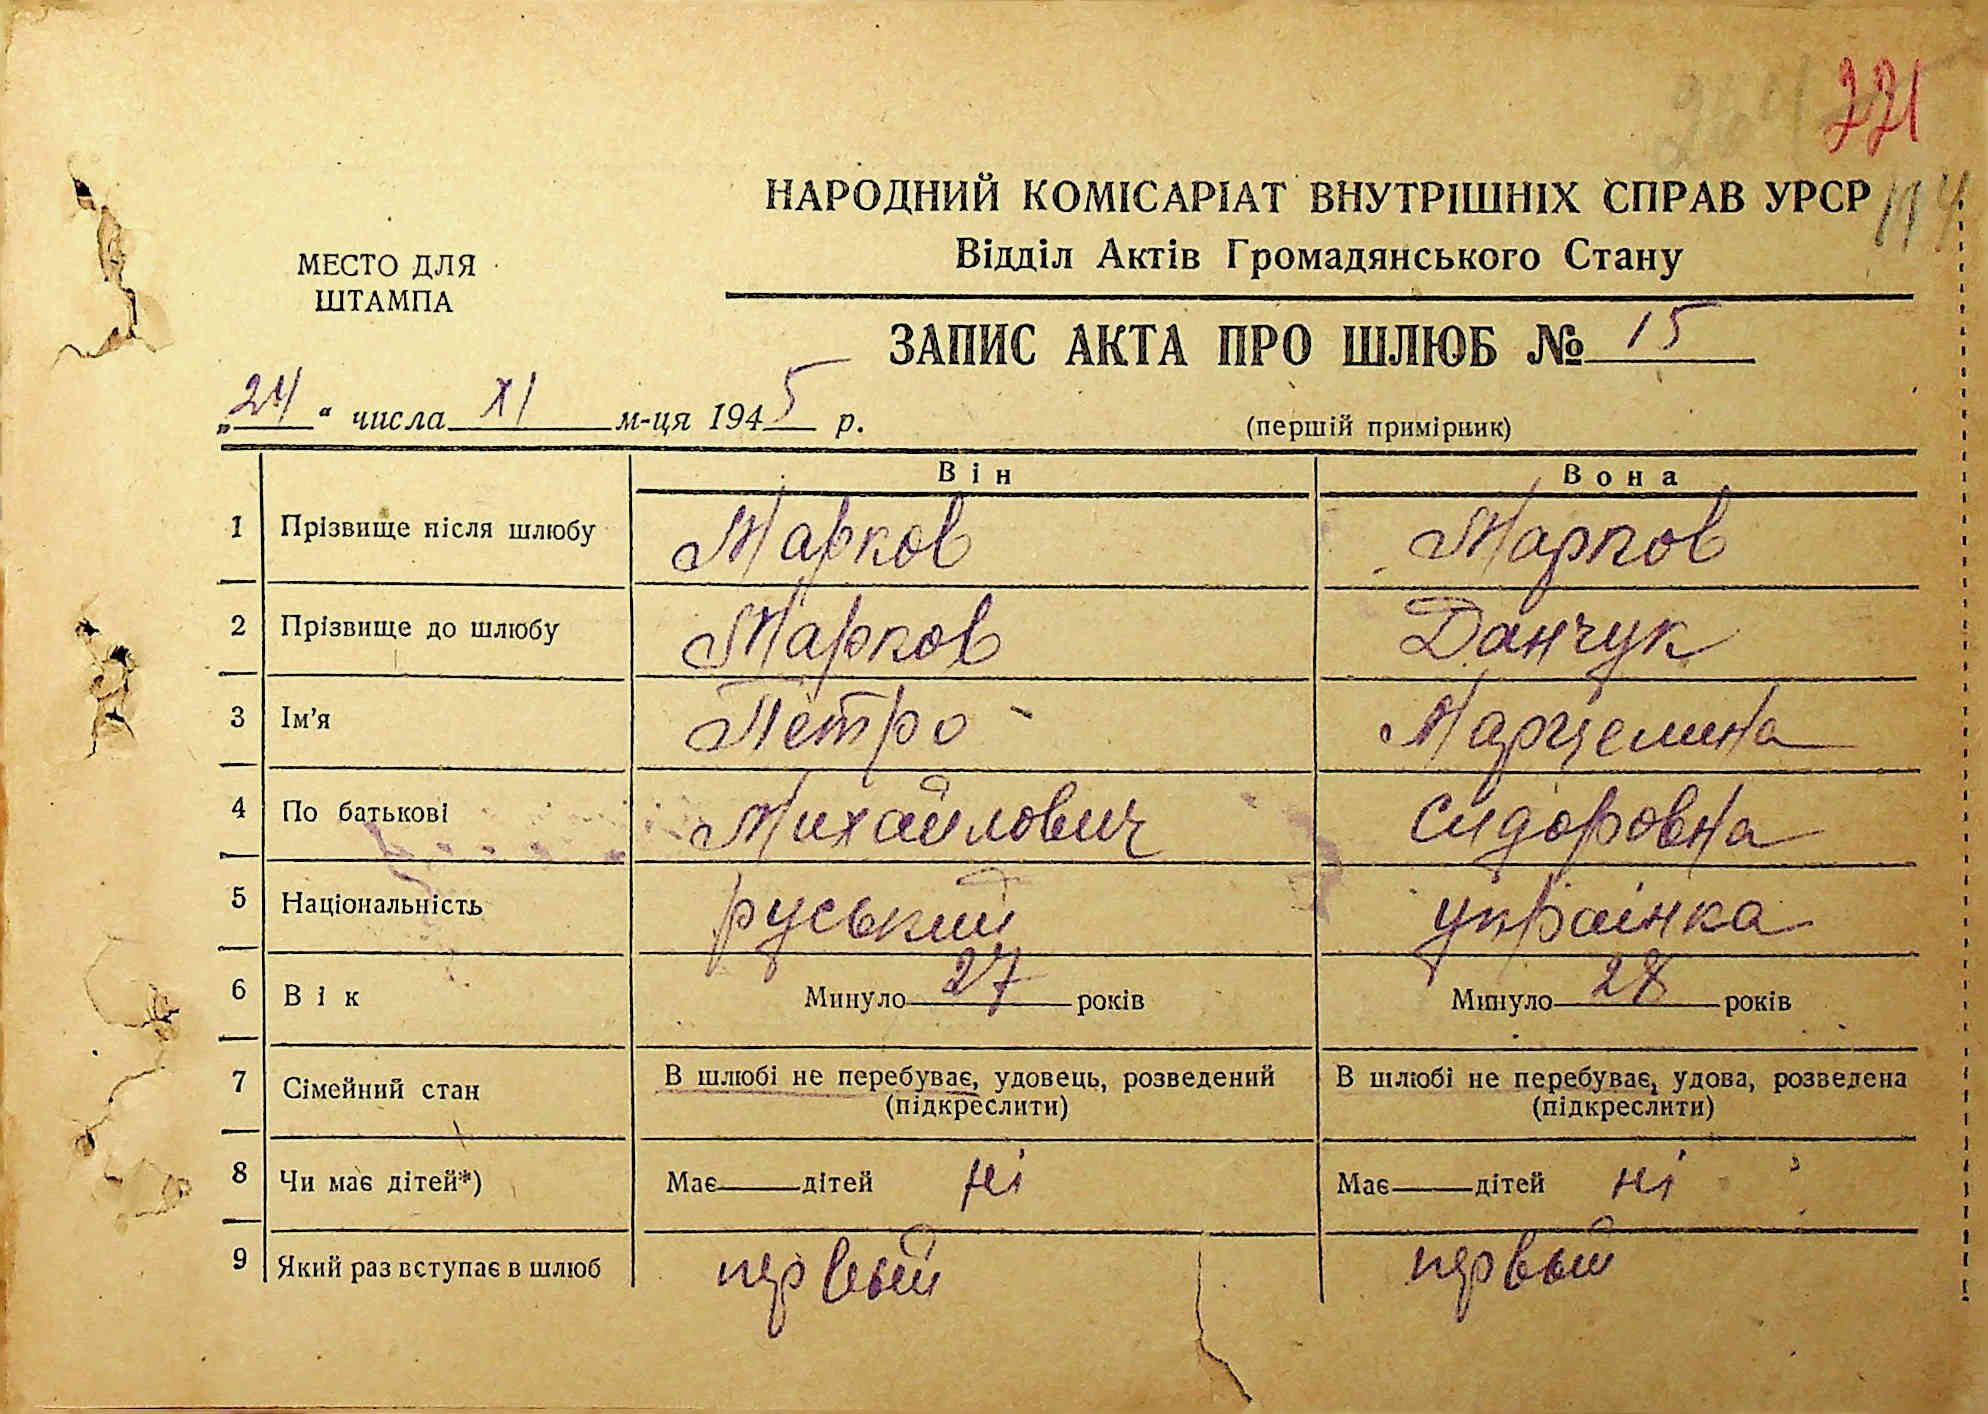 264
221
НАРОДНИЙ КОМІСАРІАТ ВНУТРІШНІХ СПРАВ УРСР
194
Відділ Актів Громадянського Стану
МЕСТО ДЛЯ
ШТАМПА
ЗАПИС АКТА ПРО ШЛЮБ № 15
„24“ числа XI м-ця 1945 р.
(першій примірник)
Він Вона
1 Прізвище після шлюбу Марков Марков
2 Прізвище до шлюбу Марков Данчук
3 Ім'я Петро Марцелина
4 По батькові Михайлович Сидоровна
5 Національність руський українка
6 Вік Минуло 27 років Минуло 28 років
7 Сімейний стан В шлюбі не перебуває, удовець, розведений В шлюбі не перебуває, удова, розведена
(підкреслити) (підкреслити)
8 Чи має дітей*) Має дітей ні Має дітей ні
9 Який раз вступає в шлюб первый первый